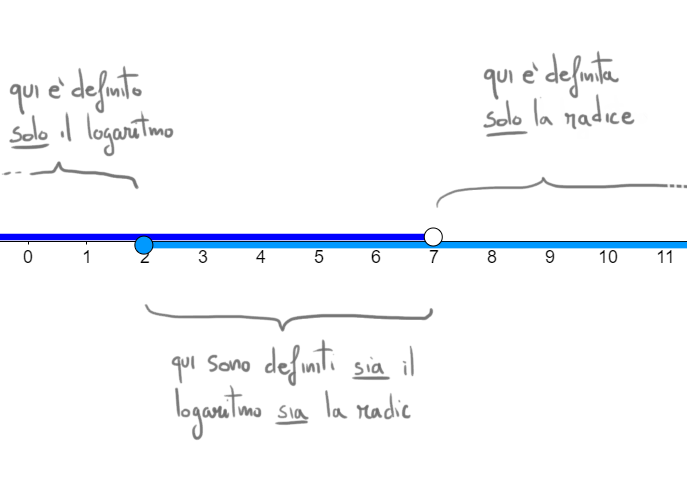 qui è definito
solo il logaritmo
qui è definita
solo la radice
0 1 2 3 4 5 6 7 8 9 10 11
qui sono definiti sia il
logaritmo sia la radic